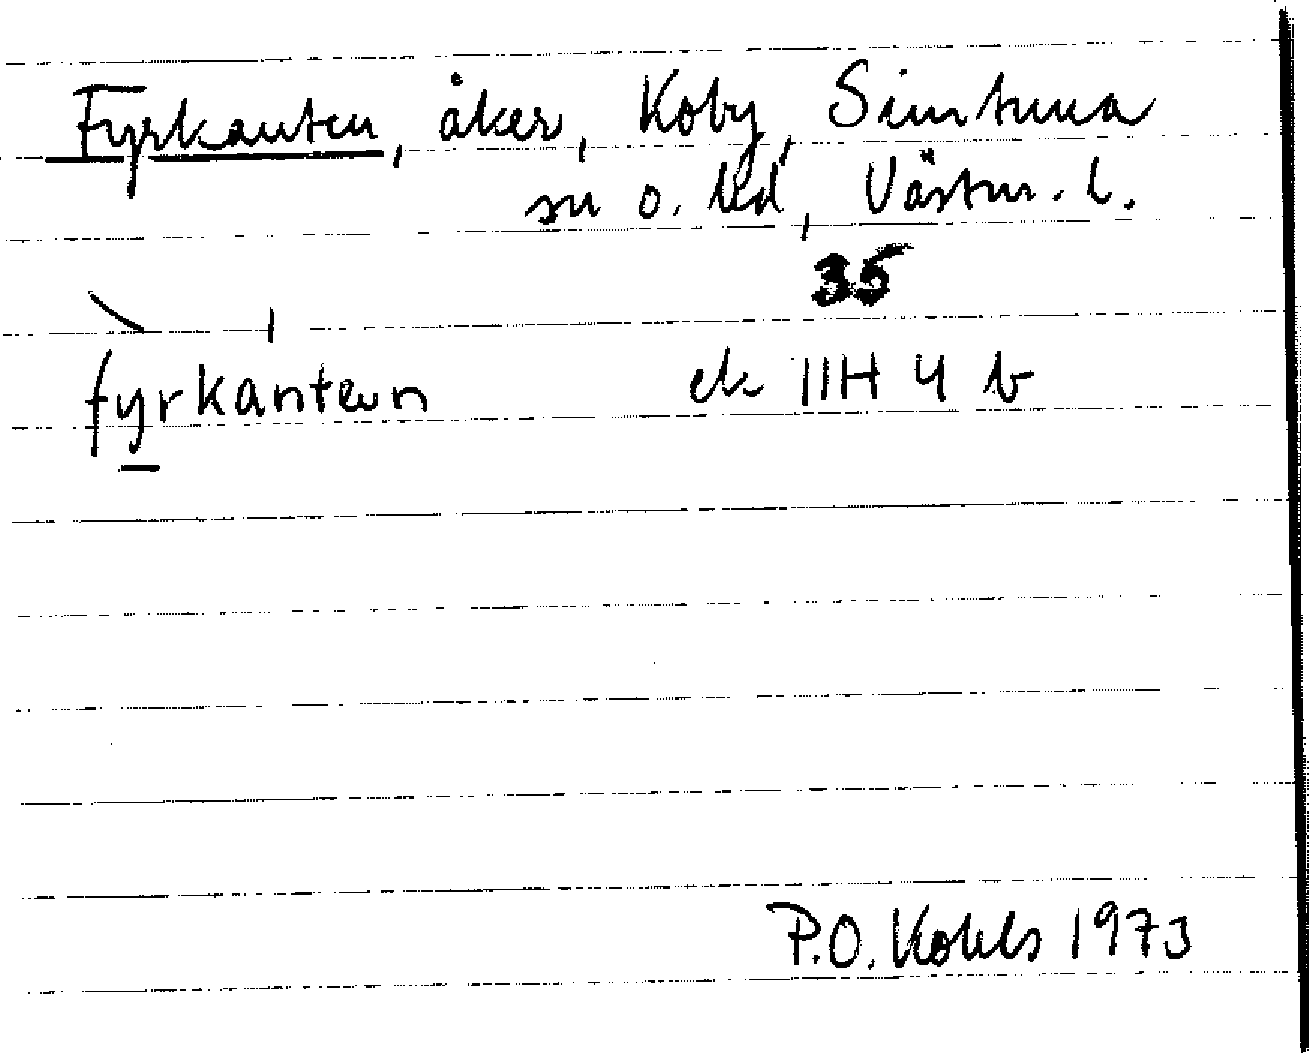 Fyrkanten, åker, Koby, Simtuna
sn o. hd, Västm. l.
35
fyrkantən ek 11H 4 b
P.O. Kohls 1973